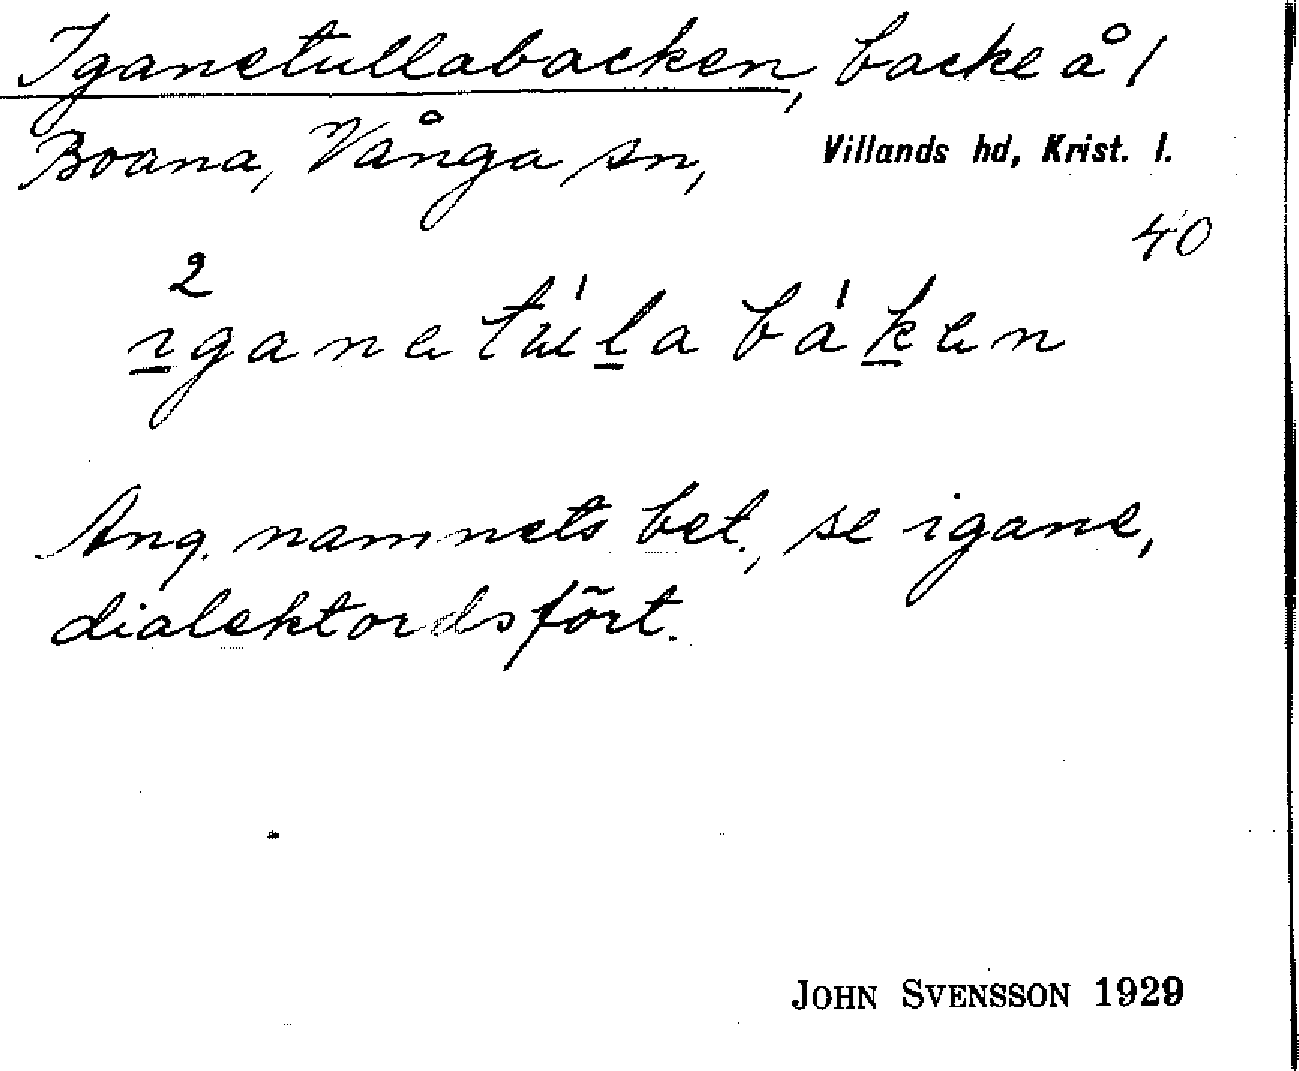 Iganetullabacken, backe å 1
Boana, Vånga sn, Villands hd, Krist. l.
40
2
igane túla bákan
Ang. namnets bet., se igane,
dialektordsfört.
JOHN SVENSSON 1929